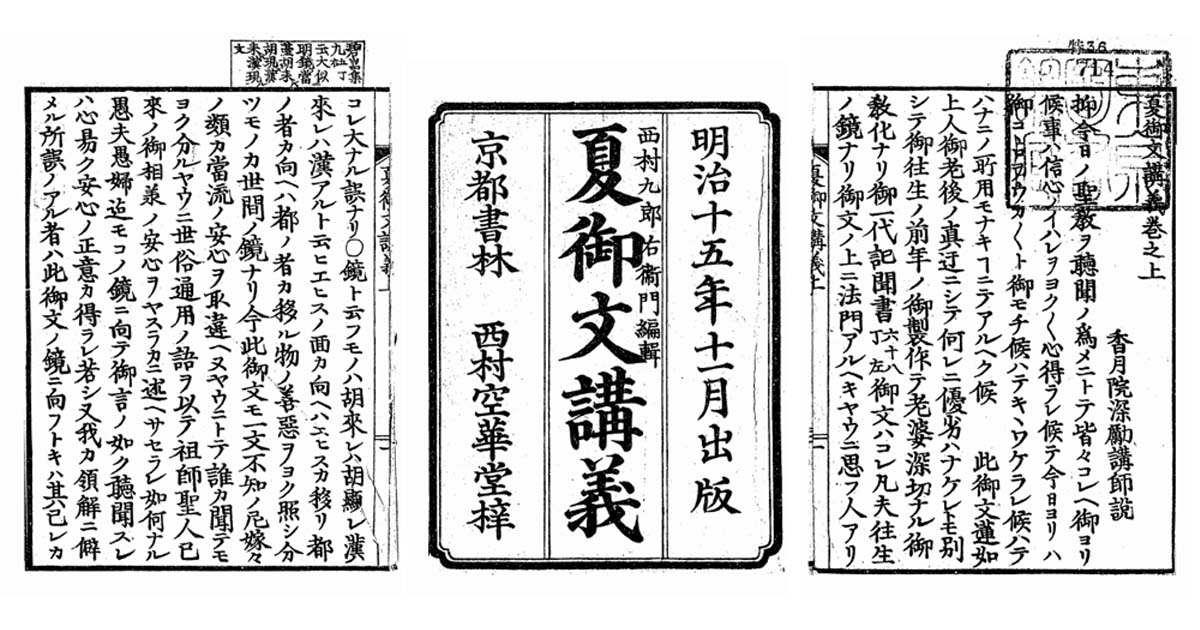 特36
714
夏御文講義巻之上
香月院深勵講師説
抑今日ノ聖教ヲ聽聞ノ爲メニトテ皆々コレヘ御ヨリ
候事ハ信心ノイハレヲヨク〱心得ラレ候テ今日ヨリハ
御コヽロヲウカ〱ト御モチ候ハテキヽワケラレ候ハテ
ハナニノ所用モナキヿニテアルヘク候　此御文蓮如
上人御老後ノ真近ニシテ何レニ優劣ハナケレトモ別
シテ御往生ノ前年ノ御製作テ老婆深切ナル御
教化ナリ御一代記聞書六十八丁左御文ハコレ凡夫往生
ノ鏡ナリ御文ノ上ニ法門アルヘキヤウニ思フ人アリ
夏御文講義上
明治十五年十一月出版
西村九郎右衞門編輯
夏御文講義
京都書林　西村空華堂梓
碧岩集
九右丁
云大似
明鏡當
臺胡来
胡現漢
来漢現
文
夏御文講義上
コレ大ナル誤ナリ〇鏡ト云フモノハ胡來レハ胡顯レ漢
來レハ漢アルト云ヒエヒスノ面カ向ヘハエヒスカ移リ都
ノ者カ向ヘハ都ノ者カ移ル物ノ善惡ヲヨク照シ分
ツモノカ世間ノ鏡ナリ今此御文モ一文不知ノ尼嫁々
ノ類カ當流ノ安心ヲ取違ヘヌヤウニトテ誰カ聞テモ
ヨク分ルヤウニ世俗通用ノ語ヲ以テ祖師聖人已
來ノ御相羕ノ安心ヲヤスラカニ述ヘサセラレ如何ナル
愚夫愚婦迠モコノ鏡ニ向テ御言ノ如ク聽聞スレ
ハ心易ク安心ノ正意カ得ラレ若シ又我カ領解ニ僻
メル所誤ノアル者ハ此御文ノ鏡ニ向フトキハ其己レカ